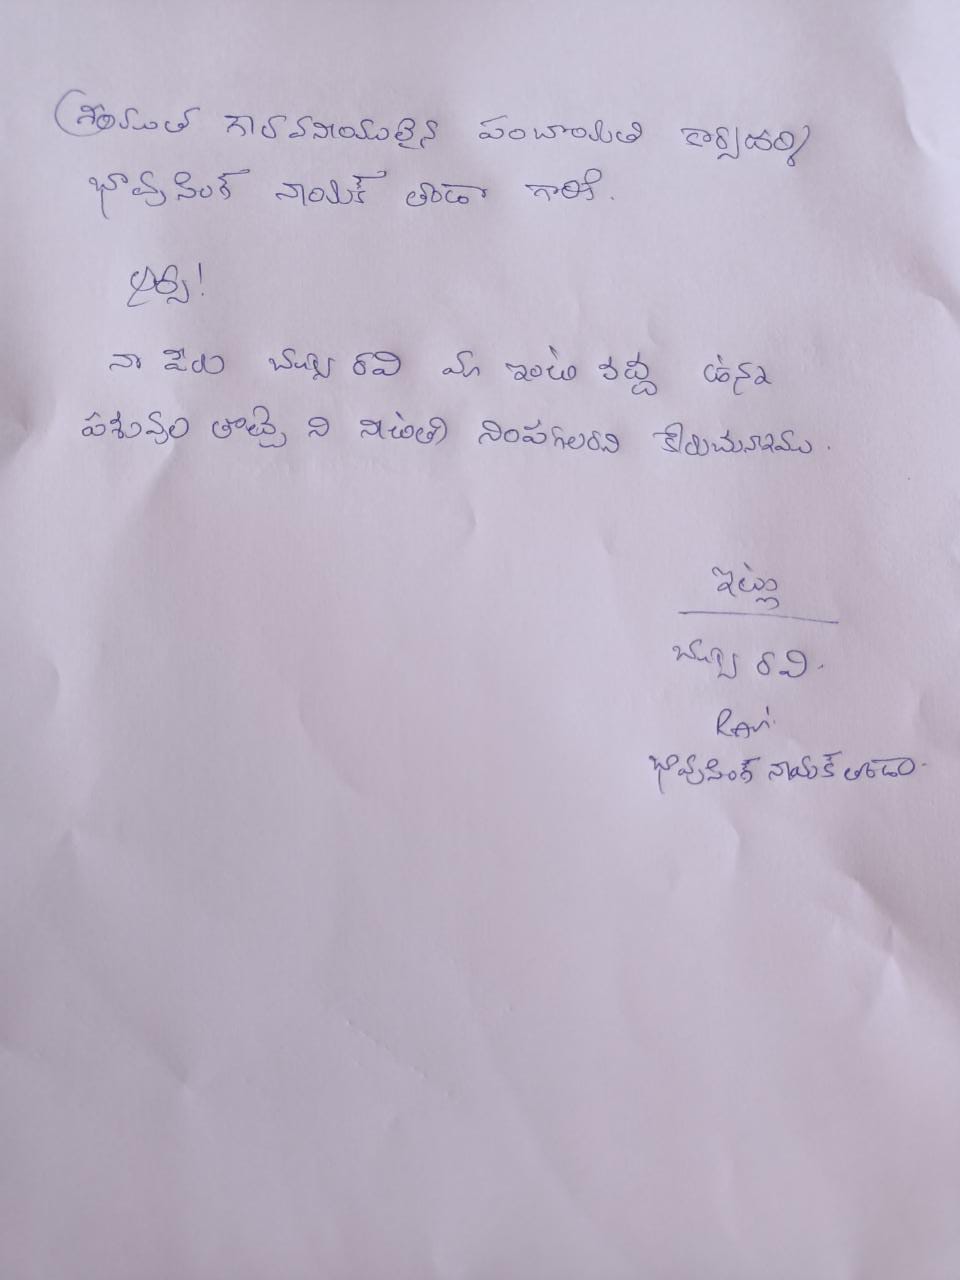 శ్రీయుత గౌరవనీయులైన పంచాయితి కార్యదర్శి
భావ్యసింగ్ నాయక్ తాండా గారికి.
ఆర్య!
నా పేరు రవి మా ఇంటి వద్ద ఉన్న
పశువుల తొట్టి ని నీటితో నింపగలరని కోరుచున్నాము.
ఇట్లు
రవి.
Ravi
భావ్యసింగ్ నాయక్ తాండా.